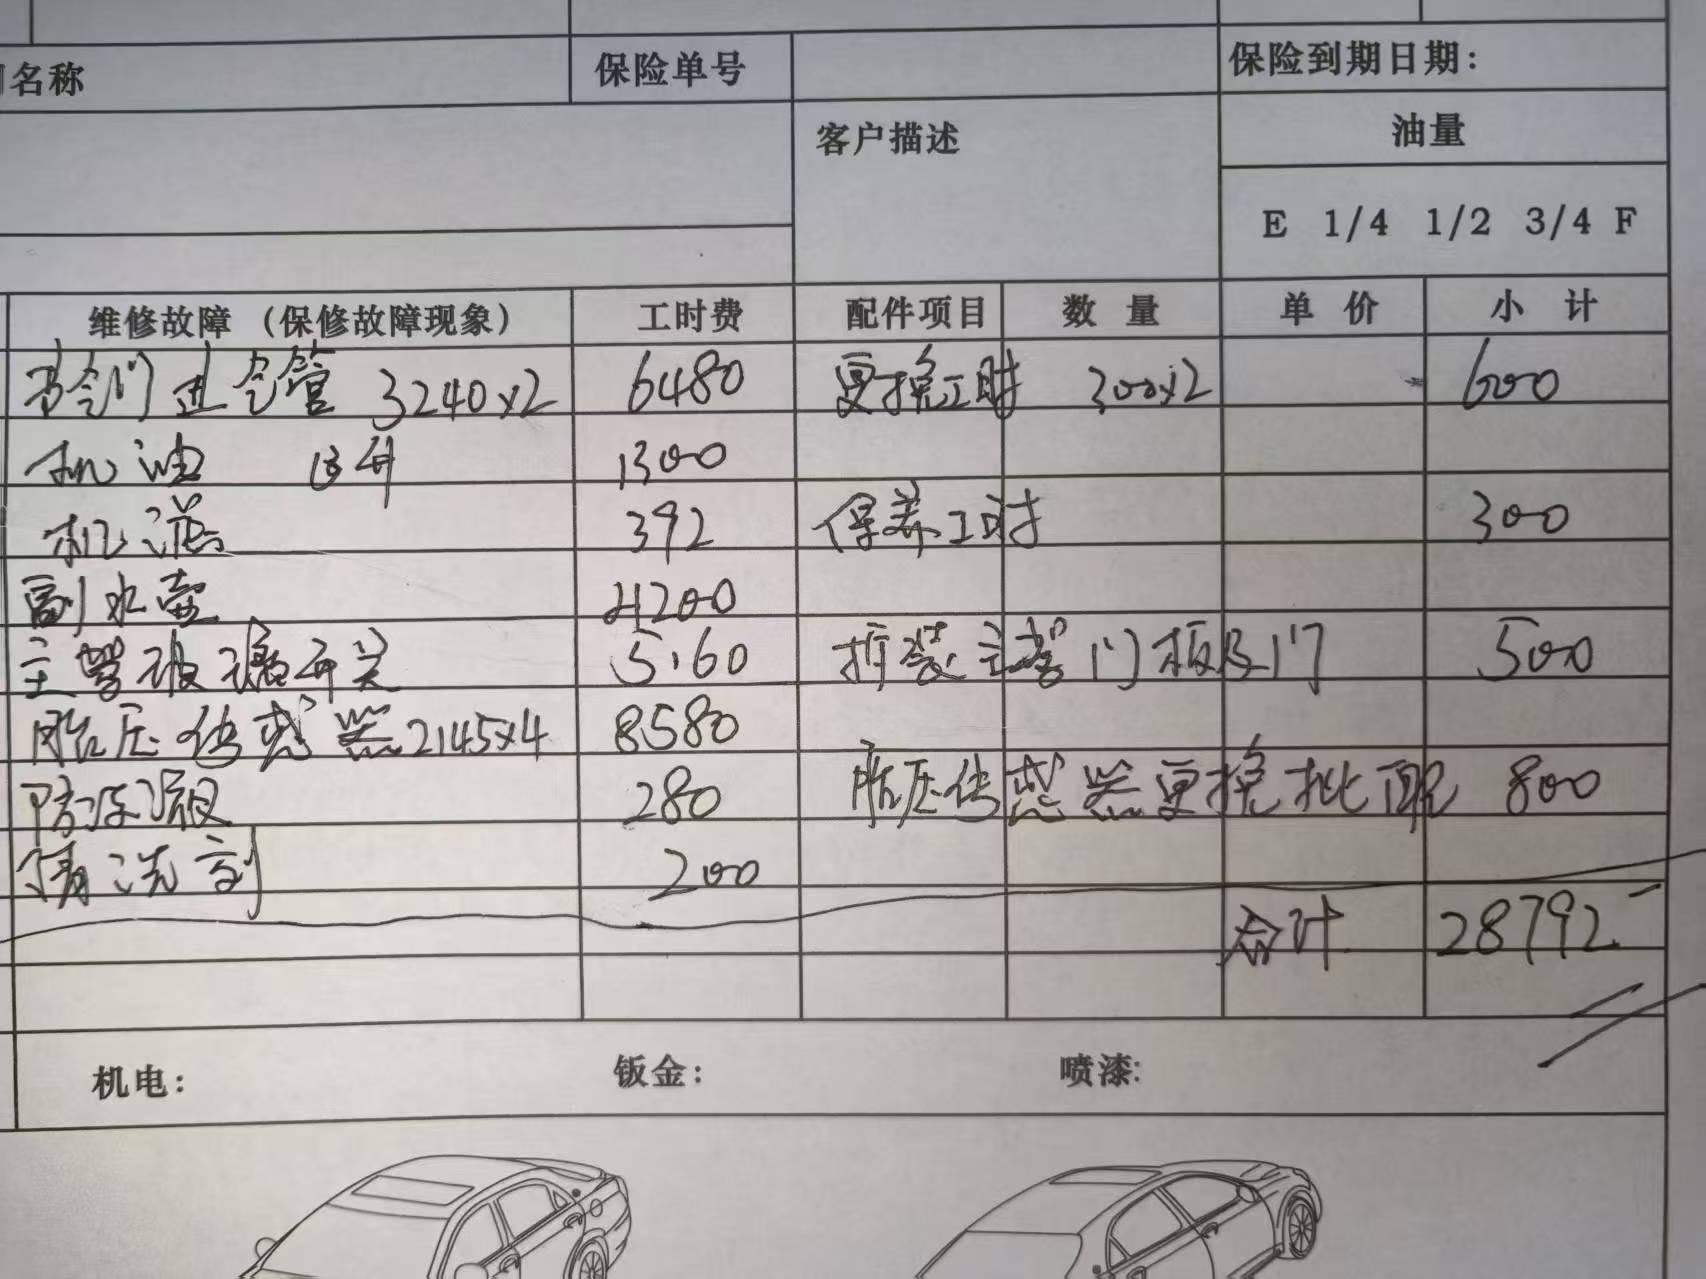 名称 保险单号 保险到期日期:
客户描述 油量
E 1/4 1/2 3/4 F
维修故障（保修故障现象） 工时费 配件项目 数量 单价 小计
节气门进气管 3240x2 6480 更换工时 300x2 600
机油 13升 1300
机滤 392 保养工时 300
副水壶 4200
主驾玻璃开关 5160 拆装主驾门板及门 500
胎压传感器2145x4 8580
防冻液 280 胎压传感器更换批配 800
清洗剂 200
合计 28792
机电: 钣金: 喷漆: